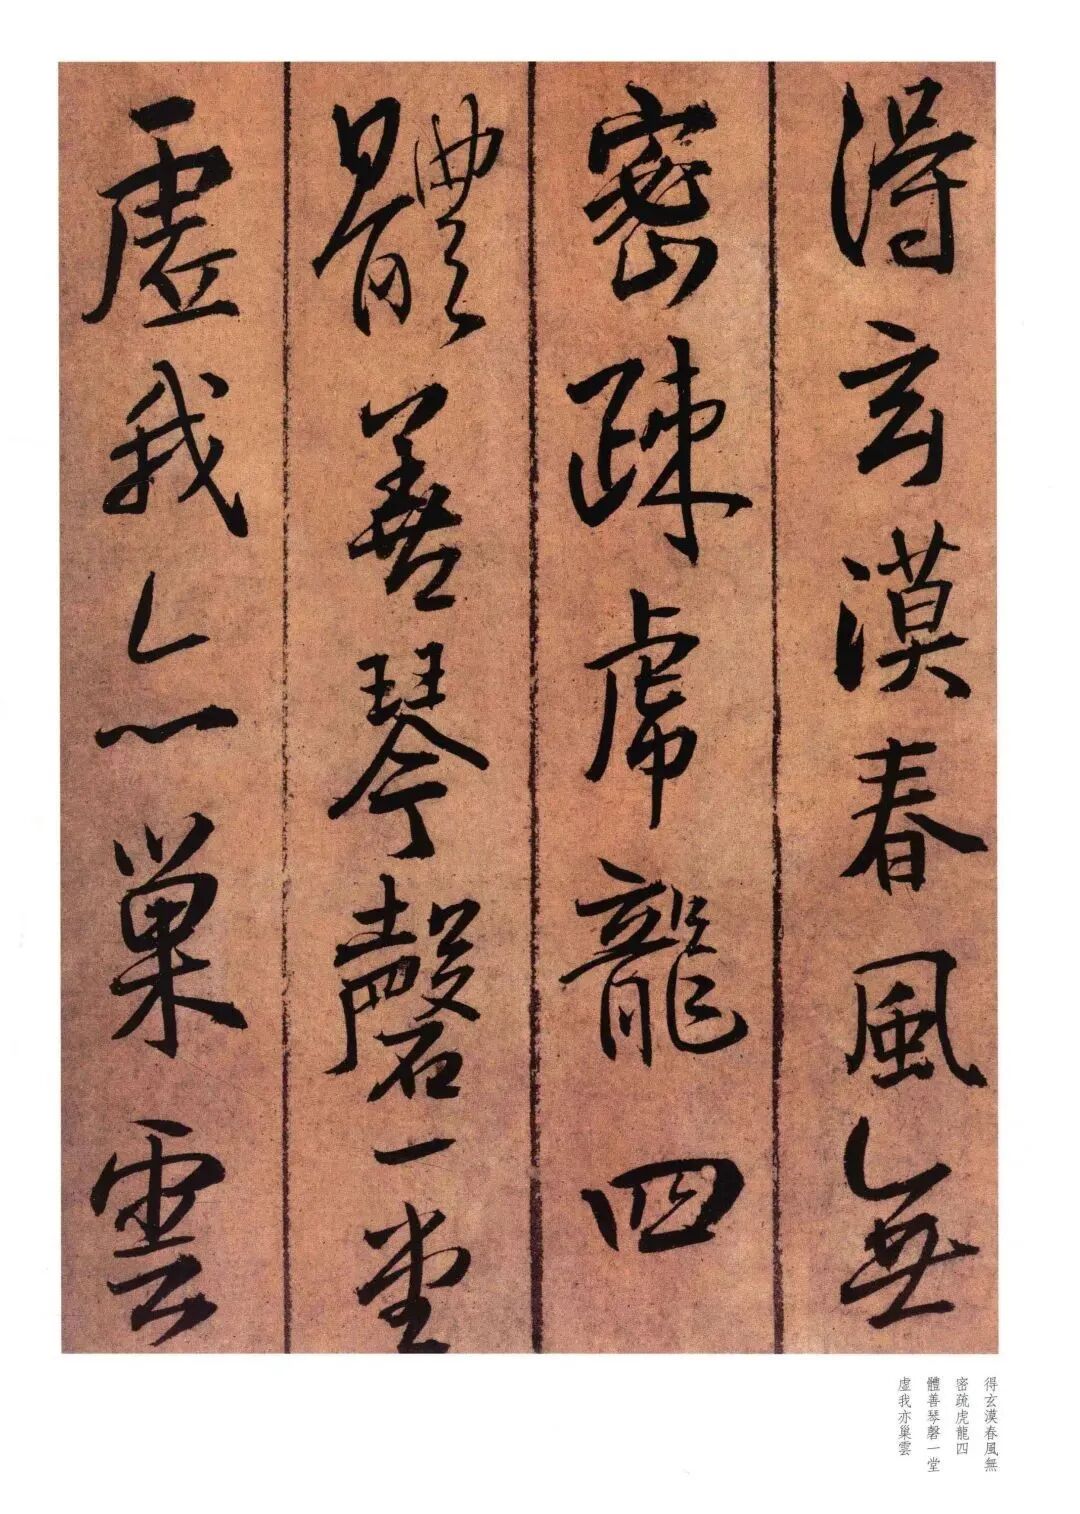 得玄漠春風無
密疏虎龍四
體善琴磬一堂
虛我亦巢雲
得玄漠春風無
密疏虎龍四
體善琴磬一堂
虛我亦巢雲